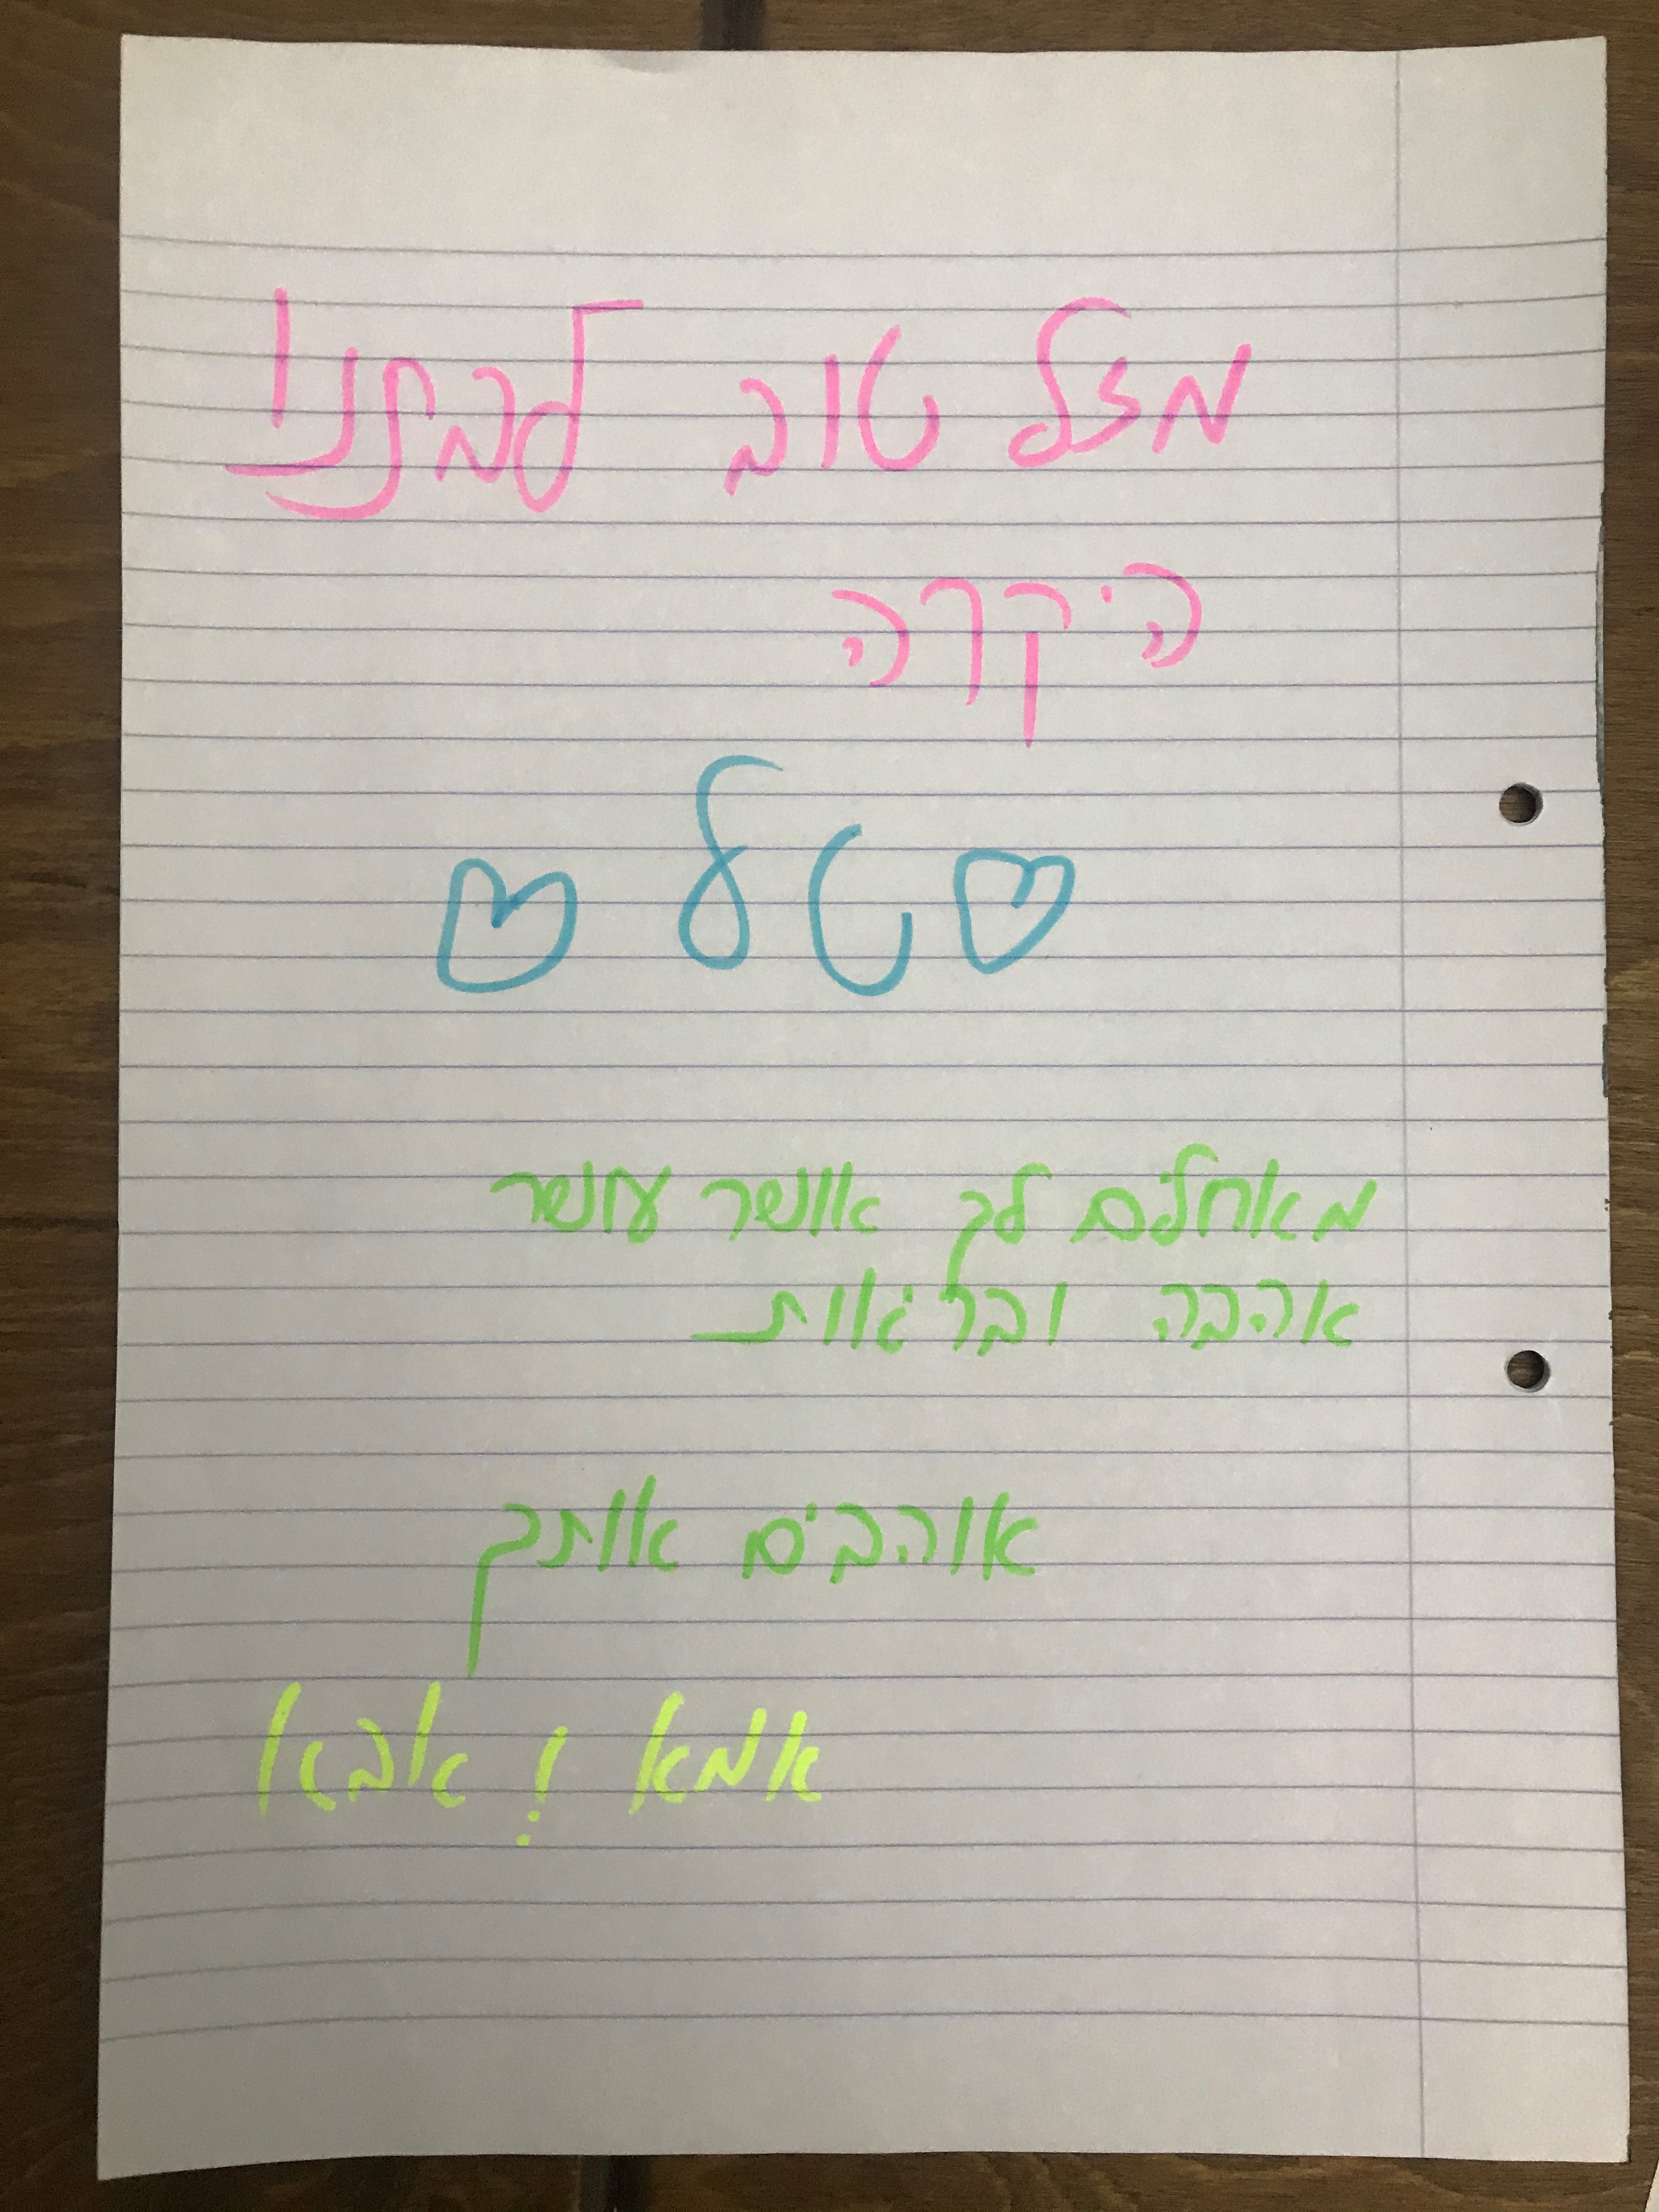 מזל טוב לבתנו
היקרה
♡ טל ♡
מאחלים לך אושר עושר
אהבה ובריאות
אוהבים אותך
אמא ! אבא